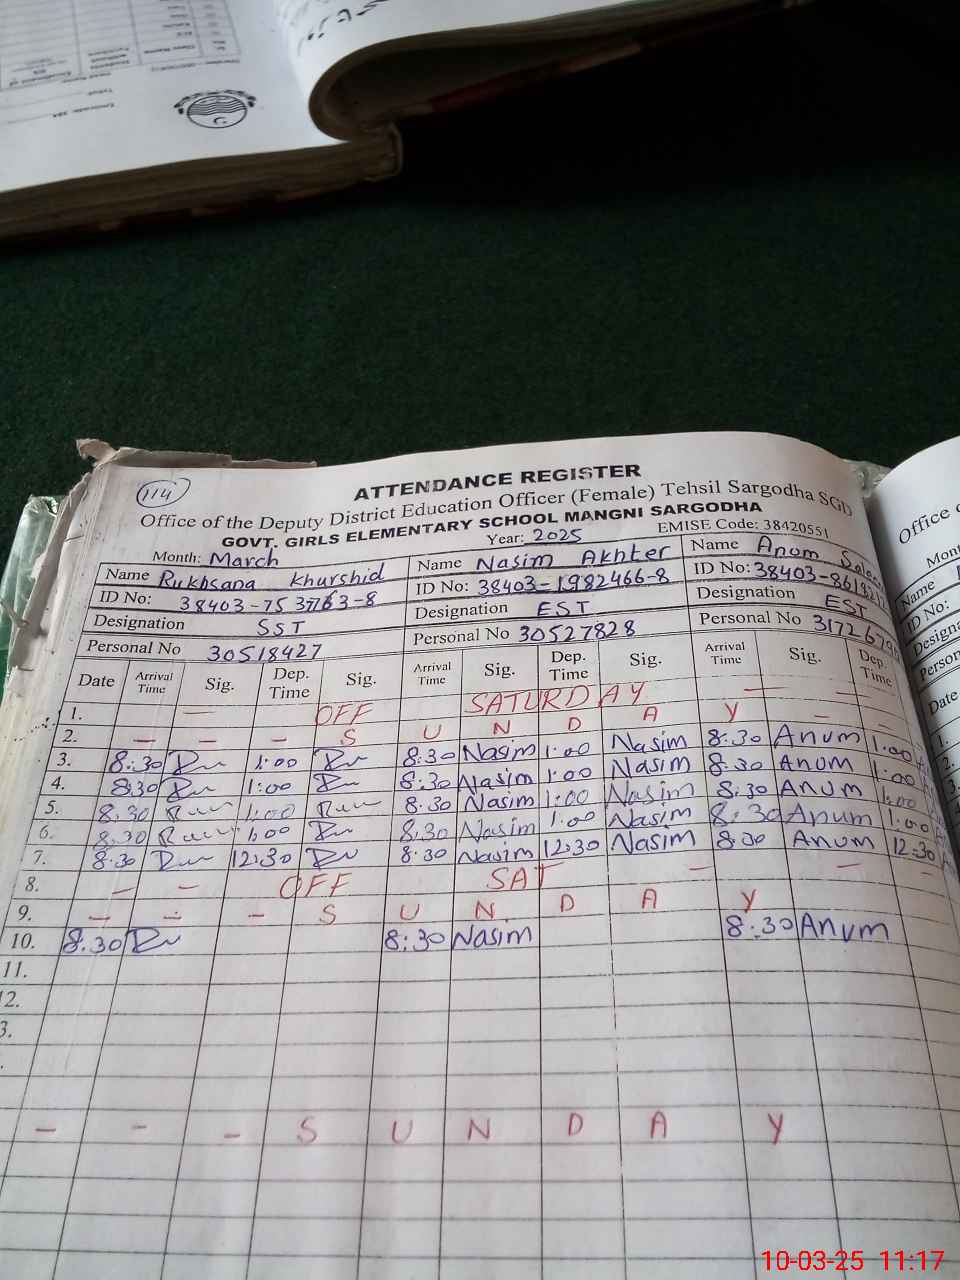 114
ATTENDANCE REGISTER
Office of the Deputy District Education Officer (Female) Tehsil Sargodha SGD
GOVT. GIRLS ELEMENTARY SCHOOL MANGNI SARGODHA
Month: March Year: 2025 EMISE Code: 38420551
Name Rukhsana Khurshid Name Nasim Akhter Name Anum
ID No: 38403-7 ID No: 38403-1982466-8 ID No: 38403-8619
Designation SST Designation EST Designation EST
Personal No 30518427 Personal No 30527828 Personal No 31726
Date Arrival Time Sig. Dep. Time Sig. Arrival Time Sig. Dep. Time Sig. Arrival Time Sig. Dep. Time
1. — OFF SATURDAY — —
2. — — — S U N D A Y —
3. 8:30 1:00 8:30 Nasim 1:00 Nasim 8:30 Anum 1:00
4. 8:30 1:00 8:30 Nasim 1:00 Nasim 8:30 Anum 1:00
5. 8:30 1:00 8:30 Nasim 1:00 Nasim 8:30 Anum 1:00
6. 8:30 1:00 8:30 Nasim 1:00 Nasim 8:30 Anum 1:00
7. 8:30 12:30 8:30 Nasim 12:30 Nasim 8:30 Anum 12:30
8. — — OFF SAT — — —
9. — — — S U N D A Y
10. 8:30 8:30 Nasim 8:30 Anum
11.
12.
3.
— — — S U N D A Y
Office
Name
ID No:
Date
1.
2.
10-03-25 11:17